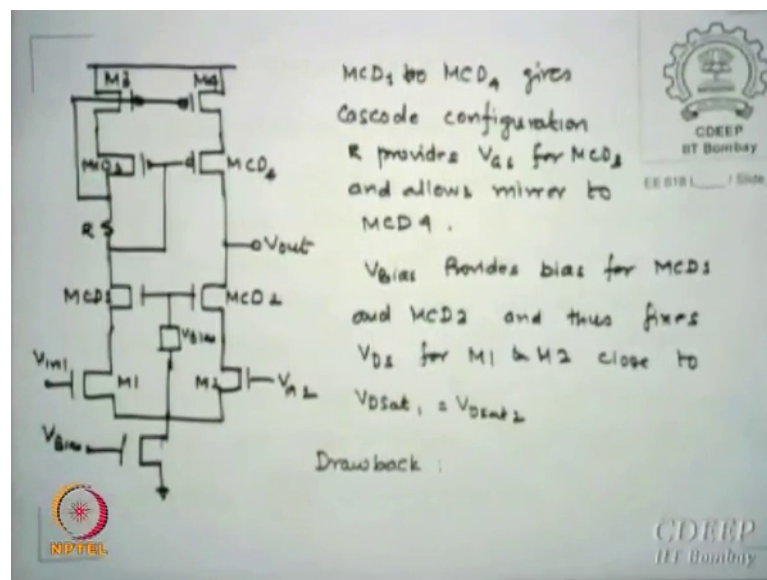 M3 M4
MCD3 MCD4
R
Vout
MCD1 MCD2
VBias
Vin1 M1 M2 Vin2
VBias
MCD3 to MCD4 gives
Cascode configuration
R provides VGS for MCD3
and allows mirror to
MCD4.
VBias Provides bias for MCD1
and MCD2 and thus fixes
VDS for M1 & M2 close to
VDSat1 = VDSat2
Drawback :
CDEEP
IIT Bombay
EE 618 L / Slide
NPTEL
CDEEP
IIT Bombay